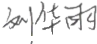 刘华雨